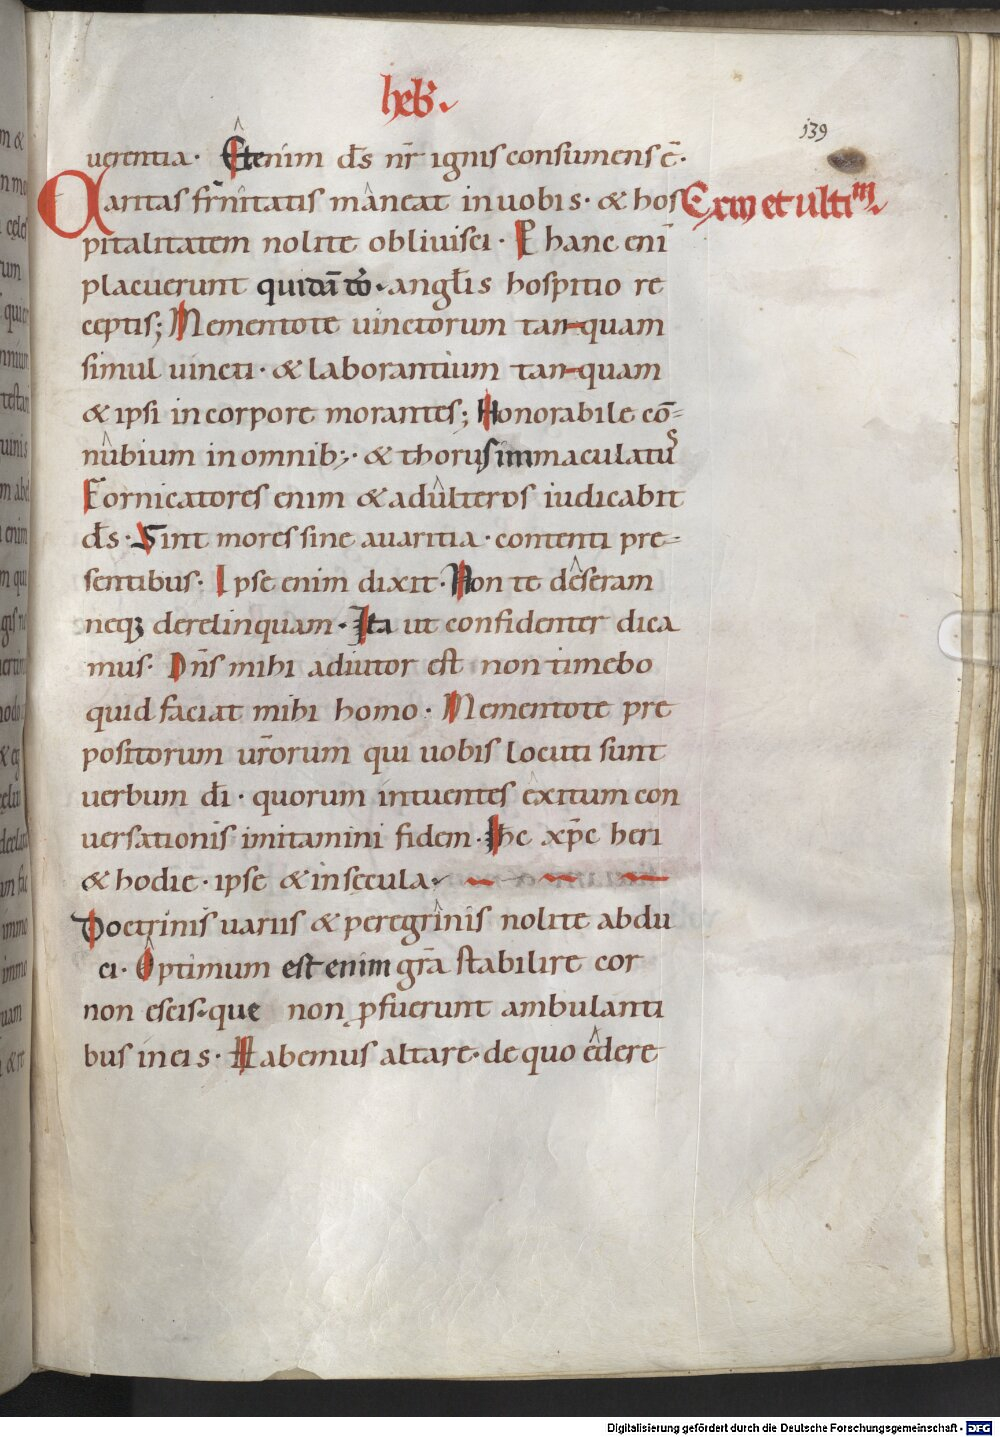 heb̄.
139
uerentia. Etenim d̄s nr̄ ignis consumens ē.
Caritas fr̄nitatis maneat in uobis. & hos
Exiii et ultim.
pitalitatem nolite obliuisci. P hanc eni̅
placuerunt quidā tō. angl̄is hospitio re
ceptis; Mementote uinctorum tan-quam
simul uincti. & laborantium tan-quam
& ipsi in corpore morantes; Honorabile cō-
nubium in omnib;. & thorus immaculatus
Fornicatores enim & adulteros iudicabit
d̄s. Sint mores sine auaritia. contenti pre-
sentibus. Ipse enim dixit. Non te deseram
neq; derelinquam. Ita ut confidenter dica
mus. Dn̄s mihi adiutor est non timebo
quid faciat mihi homo. Mementote pre
positorum ur̄orum qui uobis locuti sunt
uerbum d̄i. quorum intuentes exitum con
uersationis imitamini fidem. Ihc xp̄c heri
& hodie. ipse & in secula.
Doctrinis uariis & peregrinis nolite abdu
ci. Optimum est enim gr̄a stabilire cor
non escis. que non pfuerunt ambulanti
bus in eis. Habemus altare. de quo edere
Digitalisierung gefördert durch die Deutsche Forschungsgemeinschaft - DFG